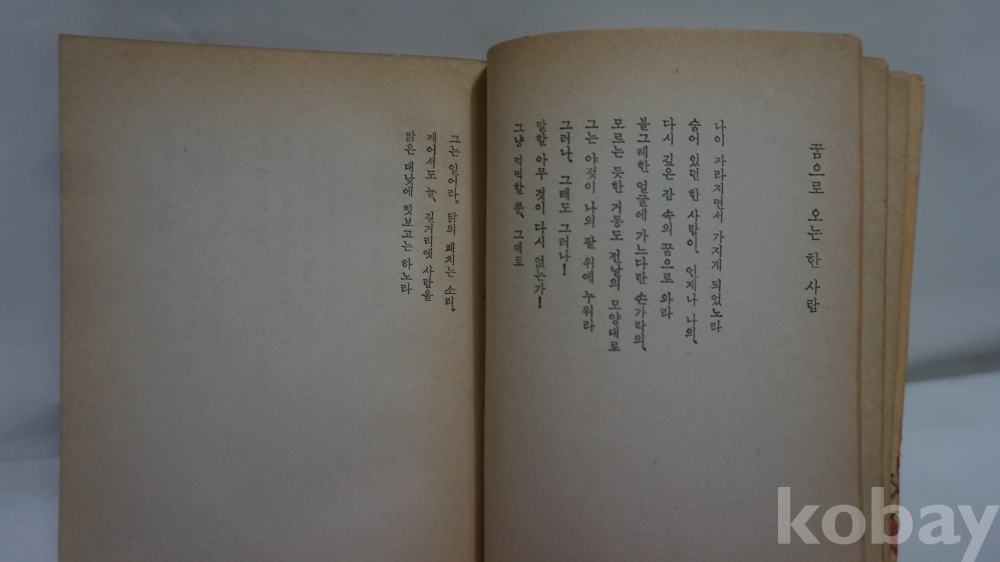 꿈으로 오는 한 사람
나이 자라지면서 가지게 되었노라
숨어 있던 한 사람이, 언제나 나의,
다시 깊은 잠 속의 꿈으로 와라
불그레한 얼굴에 가느다란 손가락의,
모르는 듯한 거동도 전날의 모양대로
그는 야젓이 나의 팔 위에 누워라
그러나, 그래도 그러나!
말할 아무 것이 다시 없는가!
그냥 먹먹할 뿐, 그대로
그는 일어라. 닭의 홰치는 소리.
깨어서도 늘, 길거리엣 사람을
밝은 대낮에 빗보고는 하노라
kobay